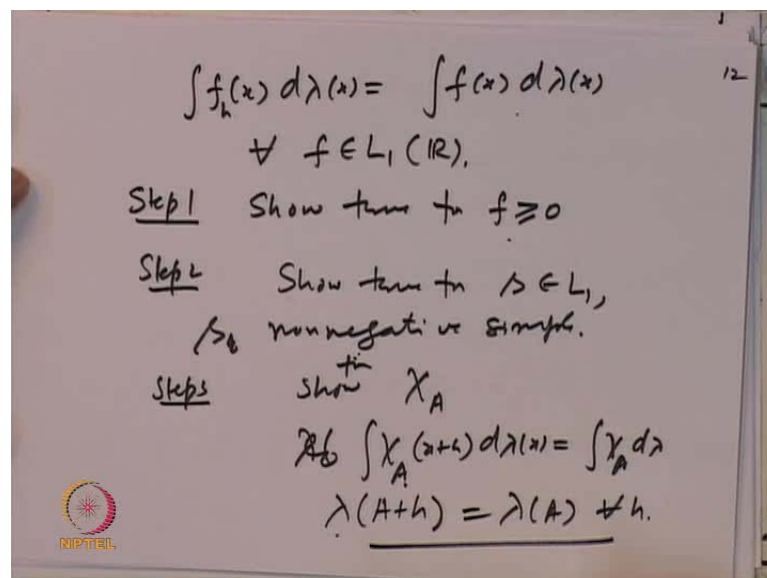 12
∫f_h(x) dλ(x) = ∫f(x) dλ(x)
∀ f ∈ L₁(ℝ).
Step 1 Show true for f ≥ 0
Step 2 Show true for s ∈ L₁,
s nonnegative simple.
Step 3 Show for χ_A
∫χ_A(x+h) dλ(x) = ∫χ_A dλ
λ(A+h) = λ(A) ∀ h.
NPTEL